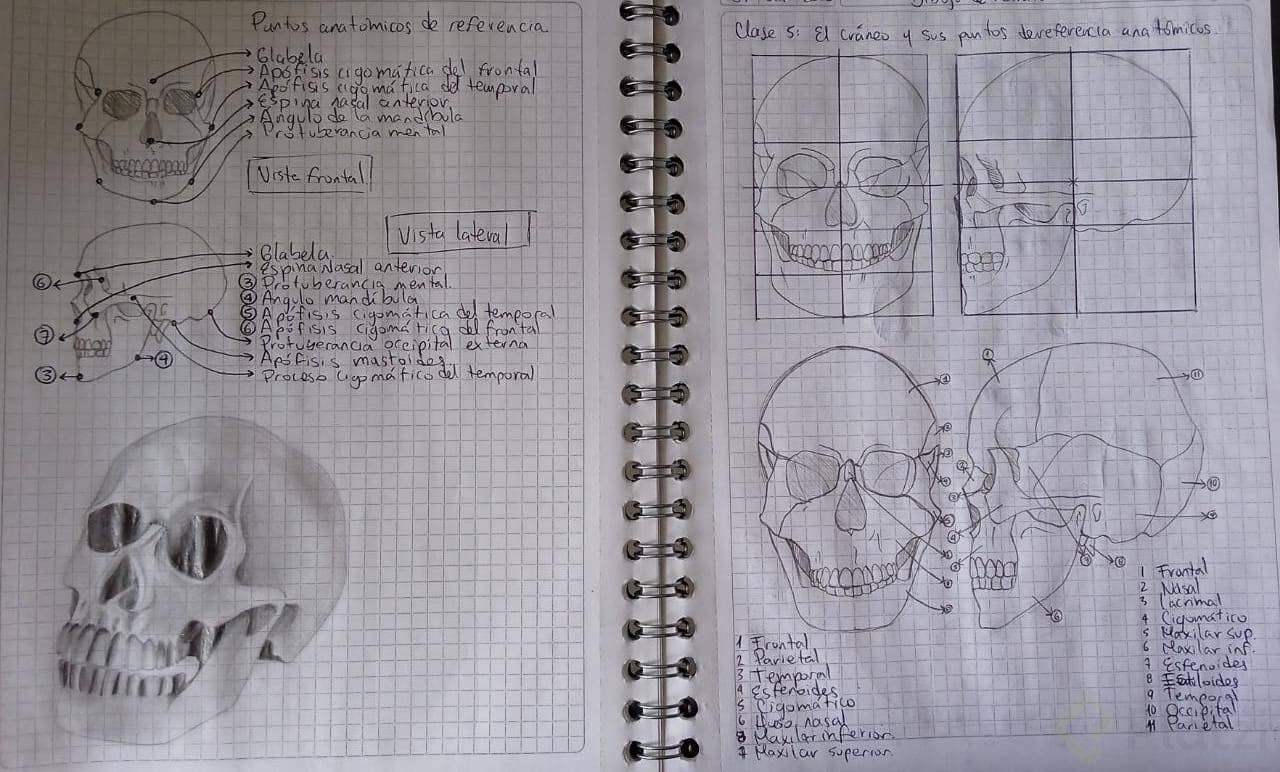 Puntos anatómicos de referencia
Glabela
Apófisis cigomática del frontal
Apófisis cigomática del temporal
Espina nasal anterior
Angulo de la mandíbula
Protuberancia mental
Vista frontal
Vista lateral
Glabela
Espina Nasal anterior
③ Protuberancia mental.
④ Angulo mandíbula
⑤ Apófisis cigomática del temporal
⑥ Apófisis cigomática del frontal
Protuberancia occipital externa
Apófisis mastoides
Proceso cigomático del temporal
⑥
⑦
③
④
Clase 5: El cráneo y sus puntos de referencia anatómicos.
⑪
⑩
⑥
1 Frontal
2 Parietal
3 Temporal
4 Esfenoides
5 Cigomático
6 Hueso nasal
8 Maxilar inferior
7 Maxilar superior
1 Frontal
2 Nasal
3 Lacrimal
4 Cigomático
5 Maxilar sup.
6 Maxilar inf.
7 Esfenoides
9 Temporal
10 Occipital
11 Parietal